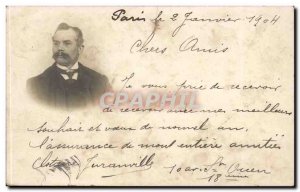 Paris le 2 Janvier 1904
Chers Amis
Je vous prie de recevoir
de recevoir avec mes meilleurs
souhait et vœux de nouvel an,
l'assurance de mont entière amitiés
Juranville 10 av. St Ouen
18